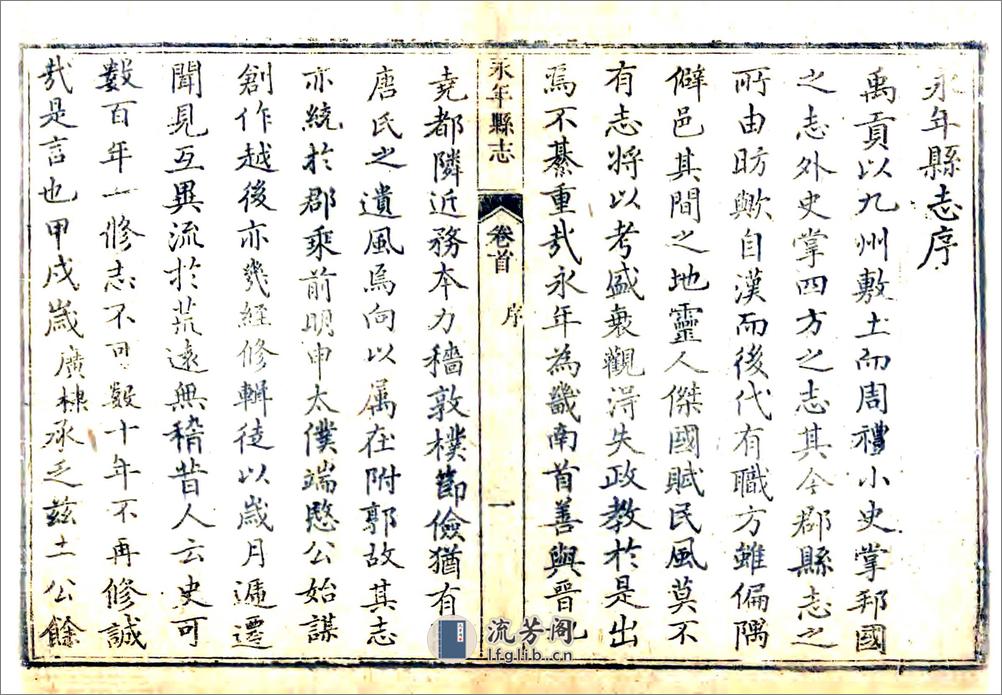 永年縣志序
禹貢以九州敷土而周禮小史掌邦國
之志外史掌四方之志其今郡縣志之
所由昉歟自漢而後代有職方雖偏隅
僻邑其間之地靈人傑國賦民風莫不
有志將以考盛衰觀得失政教於是出
焉不綦重哉永年為畿南首善與晉
永年縣志
卷首
序
一
堯都隣近務本力穡敦樸節儉猶有
唐氏之遺風焉向以属在附郭故其志
亦統於郡乘前明申太僕端愍公始謀
創作越後亦幾經修輯徒以歲月遞遷
聞見互異流於荒遠無稽昔人云史可
數百年一修志不可數十年不再修誠
哉是言也甲戌歲廣棣承乏兹土公餘
流芳阁
lfglib.cn